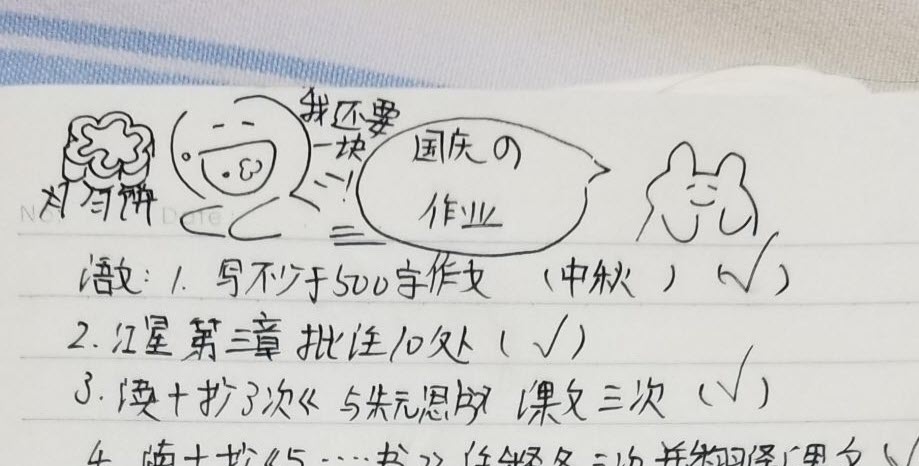 我还要
一块
国庆の
作业
月饼
No.
Date
语文: 1. 写不少于500字作文 (中秋) (√)
2. 红星 第三章 批注10处 (√)
3. 读十扩3次《与朱元思书》课文三次 (√)
4. 读十扩《与……书》